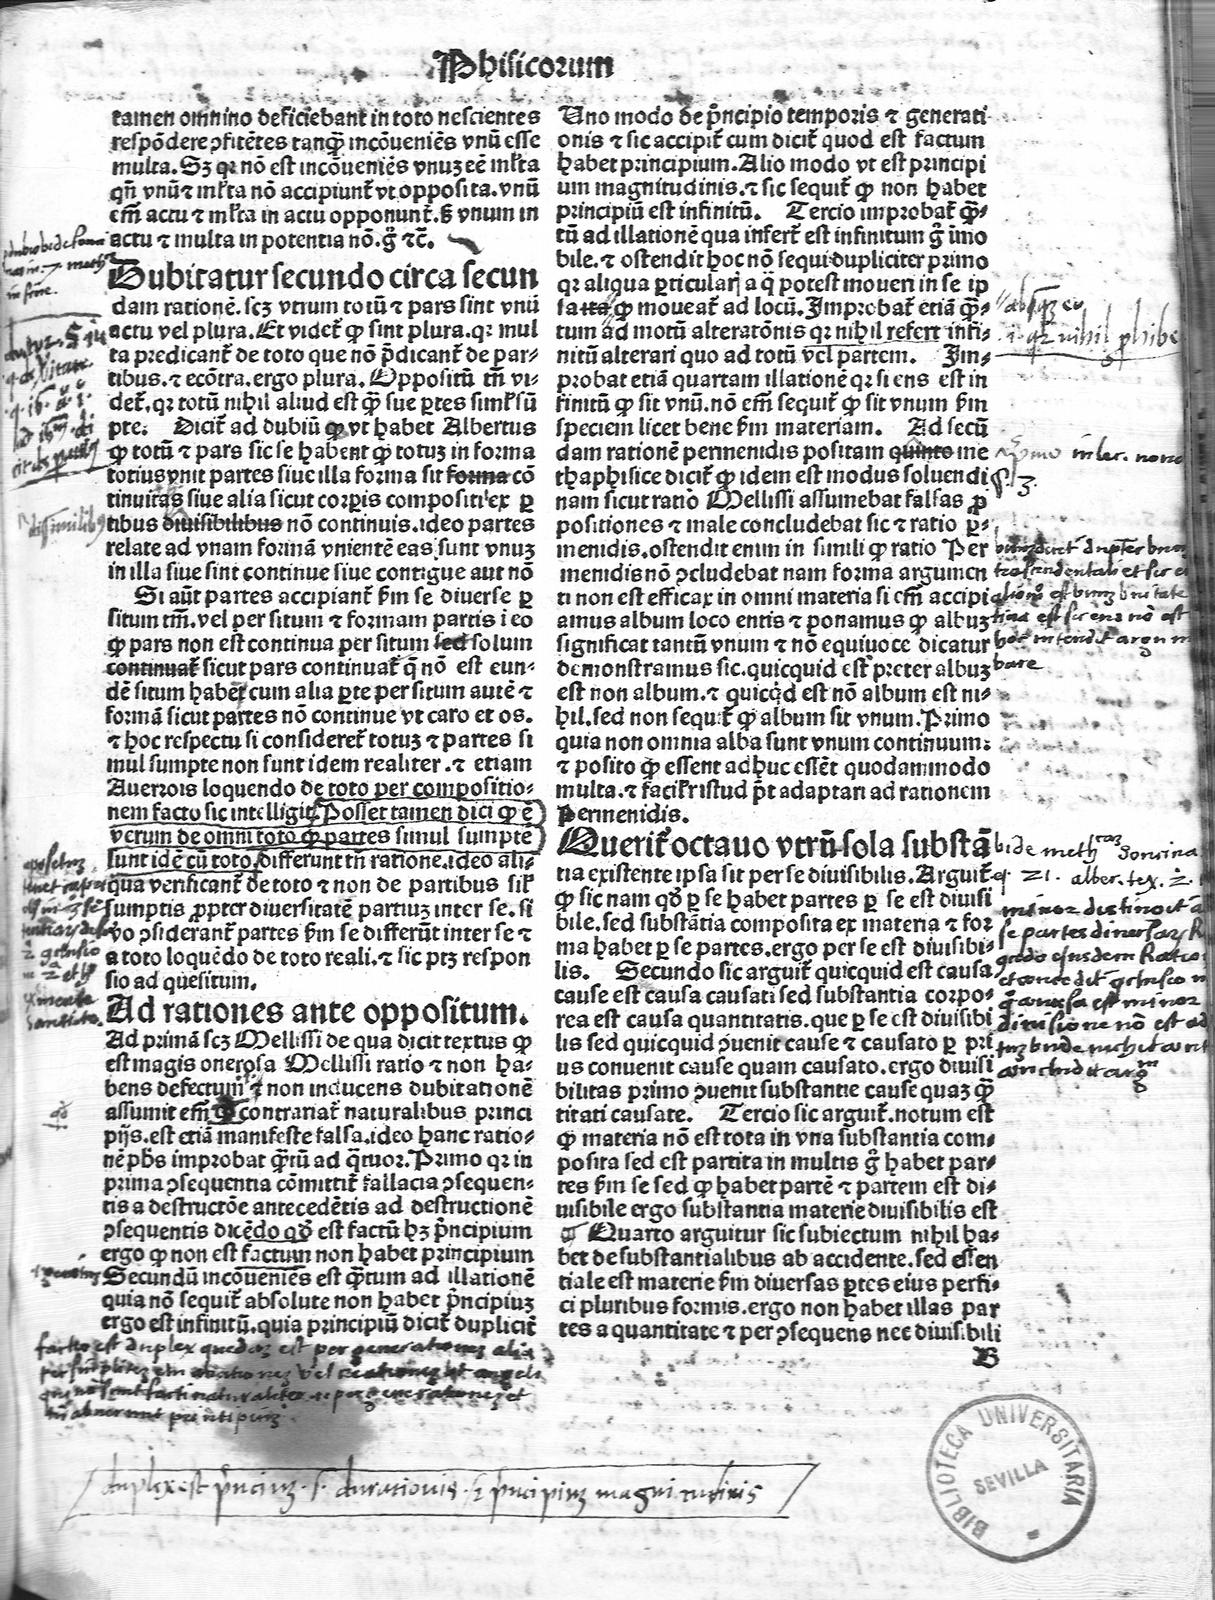 Phisicorum
tamen omnino deficiebant in toto nescientes
respōdere ꝯfitētes tanqȝ incōueniēs vnū esse
multa. Sȝ qꝛ nō est incōueniēs vnuȝ eē mlta
qñ vnū ⁊ mlta nō accipiunt̃ vt opposita. vnū
em̃ actu ⁊ mlta in actu opponunt̃. ſȝ vnum in
actu ⁊ multa in potentia nō. g̃ ⁊c̃.
Dubitatur secundo circa secun
dam rationē. scȝ vtrum totū ⁊ pars sint vnū
actu vel plura. Et videt̃ ꝙ sint plura. qꝛ mul
ta predicant̃ de toto que nō p̄dicant̃ de par-
tibus. ⁊ ecōtra. ergo plura. Oppositū tñ vi-
det̃. qꝛ totū nihil aliud est qȝ sue ꝑtes siml sū
pte. Dicit̃ ad dubiū ꝙ vt habet Albertus
ꝙ totū ⁊ pars sic se habent ꝙ totuȝ in forma
totius vnit partes siue illa forma sit forma cō
tinuitas siue alia sicut corꝑis compositi ex ꝑ
tibus diuisibilibus nō continuis. ideo partes
relate ad vnam formā vnientē eas sunt vnuȝ
in illa siue sint continue siue contigue aut nō
Si aūt partes accipiant̃ ẜm se diuerse ꝑ
situm tm̃. vel per situm ⁊ formam partis i eo
ꝙ pars non est continua per situm sed solum
continuat̃ sicut pars continuat̃ q̄ nō est eun-
dē situm habēs cum alia ꝑte per situm autē ⁊
formā sicut partes nō continue vt caro et os.
⁊ hoc respectu si consideret̃ totuȝ ⁊ partes si
mul sumpte non sunt idem realiter. ⁊ etiam
Auerrois loquendo de toto per compositio-
nem facto sic intelligit. Posset tamen dici ꝙ ē
verum de omni toto ꝙ partes simul sumpte
sunt idē cū toto. differunt tñ ratione. ideo ali-
qua verificant̃ de toto ⁊ non de partibus sil
sumptis ꝓpter diuersitatē partiuȝ inter se. si
vo ꝯsiderant̃ partes ẜm se differūt inter se ⁊
a toto loquēdo de toto reali. ⁊ sic ptȝ respon
sio ad quesitum.
Ad rationes ante oppositum.
Ad primā scȝ Mellissi de qua dicit textus ꝙ
est magis onerosa Mellissi ratio ⁊ non ha-
bens defectum ⁊ non inducens dubitationē
assumit em̃ contrariat̃ naturalibus princi
pijs. est etiā manifeste falsa. ideo hanc ratio-
nē phs improbat qȝtū ad q̄tuor. Primo qꝛ in
prima ꝯsequentia cōmittit̃ fallacia ꝯsequen-
tis a destructōe antecedētis ad destructionē
ꝯsequentis dicēdo qđ est factū hȝ p̄ncipium
ergo ꝙ non est factum non habet principium
Secundū incōueniēs est qȝtum ad illationē
quia nō sequit̃ absolute non habet p̄ncipiuȝ
ergo est infinitū. quia principiū dicit̃ duplicit̃
Uno modo de p̄ncipio temporis ⁊ generati
onis ⁊ sic accipit̃ cum dicit̃ quod est factum
habet principium. Alio modo vt est principi
um magnitudinis. ⁊ sic sequit̃ ꝙ non habet
principiū est infinitū. Tercio improbat̃ qȝ-
tū ad illationē qua infert̃ est infinitum g̃ īmo
bile. ⁊ ostendit hoc nō sequi dupliciter primo
qꝛ aliqua ꝑticularis aq̄ potest moueri in se ip
sa ꝙ moueat̃ ad locū. Improbat̃ etiā qȝ-
tum ad motū alteratōnis qꝛ nihil refert infi-
nitū alterari quo ad totū vel partem. Im-
probat etiā quartam illationē qꝛ si ens est in
finitū ꝙ sit vnū. nō em̃ sequit̃ ꝙ sit vnum ẜm
speciem licet bene ẜm materiam. Ad secū
dam rationē permenidis positam quinto me
thaphisice dicit̃ ꝙ idem est modus soluendi
nam sicut ratio Mellissi assumebat falsas ꝓ
positiones ⁊ male concludebat sic ⁊ ratio ꝑ-
menidis. ostendit enim in simili ꝙ ratio Per
menidis nō ꝯcludebat nam forma argumen
ti non est efficax in omni materia si em̃ accipi
amus album loco entis ⁊ ponamus ꝙ albuȝ
significat tantū vnum ⁊ nō equiuoce dicatur
demonstramus sic. quicquid est preter albuȝ
est non album. ⁊ quicqd est nō album est ni-
hil. sed non sequit̃ ꝙ album sit vnum. Primo
quia non omnia alba sunt vnum continuum:
⁊ posito ꝙ essent adhuc essēt quodammodo
multa. ⁊ facilr istud p̄t adaptari ad rationem
Permenidis.
Querit̃ octauo vtrū sola substā
tia existente ipsa sit per se diuisibilis. Arguit̃
ꝙ sic nam qđ ꝑ se habet partes ꝑ se est diuisi
bile. sed substātia composita ex materia ⁊ for
ma habet ꝑ se partes. ergo per se est diuisibi-
lis. Secundo sic arguit̃ quicquid est causa
cause est causa causati sed substantia corpo-
rea est causa quantitatis. que ꝑ se est diuisibi
lis sed quicquid ꝯuenit cause ⁊ causato ꝑ pri
us conuenit cause quam causato. ergo diuisi
bilitas primo ꝯuenit substantie cause quaȝ qȝ
titati causate. Tercio sic arguit̃. notum est
ꝙ materia nō est tota in vna substantia com-
posita sed est partita in multis g̃ habet par-
tes ẜm se sed ꝙ habet partē ⁊ partem est di-
uisibile ergo substantia materie diuisibilis est
Quarto arguitur sic subiectum nihil ha-
bet de substantialibus ab accidente. sed essen
tiale est materie ẜm diuersas ꝑtes eius perfi-
ci pluribus formis. ergo non habet illas par
tes a quantitate ⁊ per ꝯsequens nec diuisibili
B
duplex est p̄ncipiuȝ .s. durationis ⁊ p̄ncipiuȝ magnitudinis
BIBLIOTECA UNIVERSITARIA
SEVILLA